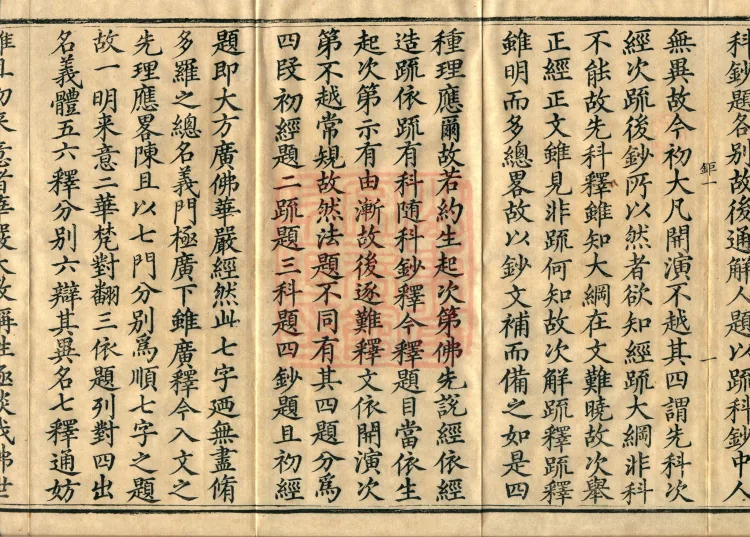 科鈔題名別故後通解人題以疏科鈔中人
鉅一
一
無異故今初大凡開演不越其四謂先科次
經次疏後鈔所以然者欲知經疏大綱非科
不能故先科釋雖知大綱在文難曉故次舉
正經正文雖見非疏何知故次解疏釋疏釋
雖明而多總畧故以鈔文補而備之如是四
種理應爾故若約生起次第佛先說經依經
造疏依疏有科隨科鈔釋今釋題目當依生
起次第示有由漸故後逐難釋文依開演次
第不越常規故然法題不同有其四題分爲
四段初經題二疏題三科題四鈔題且初經
題即大方廣佛華嚴經然此七字廼無盡脩
多羅之總名義門極廣下雖廣釋今入文之
先理應畧陳且以七門分別爲順七字之題
故一明来意二華梵對翻三依題列對四出
名義體五六釋分別六辯其異名七釋通妨